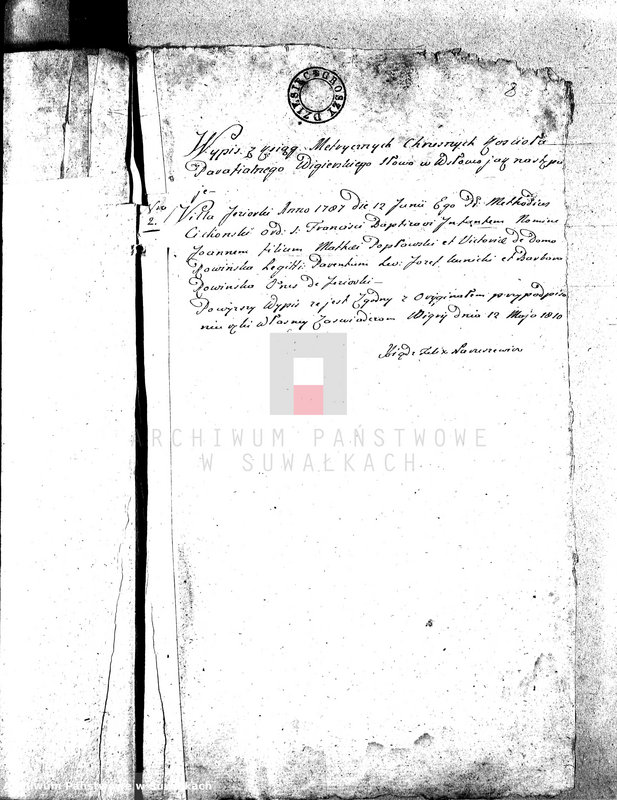 DZIESIĘC GROSZY
8
Wypis z xsiąg Metrycznych Chresnych Kosciola
Parafialnego Wigierskiego Słowo w Słowo jak nastęmpu
je
Nro 2.
Villa Jeziorki Anno 1787 die 12 Junii Ego Fr. Methodius
Cichonski Ord: S: Francisci Baptizavi Infantem Nomine
Joannem filium Mathei Popławski et Victoriæ de Domo
Rowinska Legitt: Parentum Lev: Jozef Kunicki et Barbara
Rowinska Omes de Jeziorki
Powyzszy Wypis ze jest Zgodny z Oryginałem przy podpisa
niu ręki własney Zaswiadczam Wigry dnia 12 Maja 1810
Xiądz Felix Naruszewicz
ARCHIWUM PAŃSTWOWE
W SUWAŁKACH
Archiwum Państwowe w Suwałkach